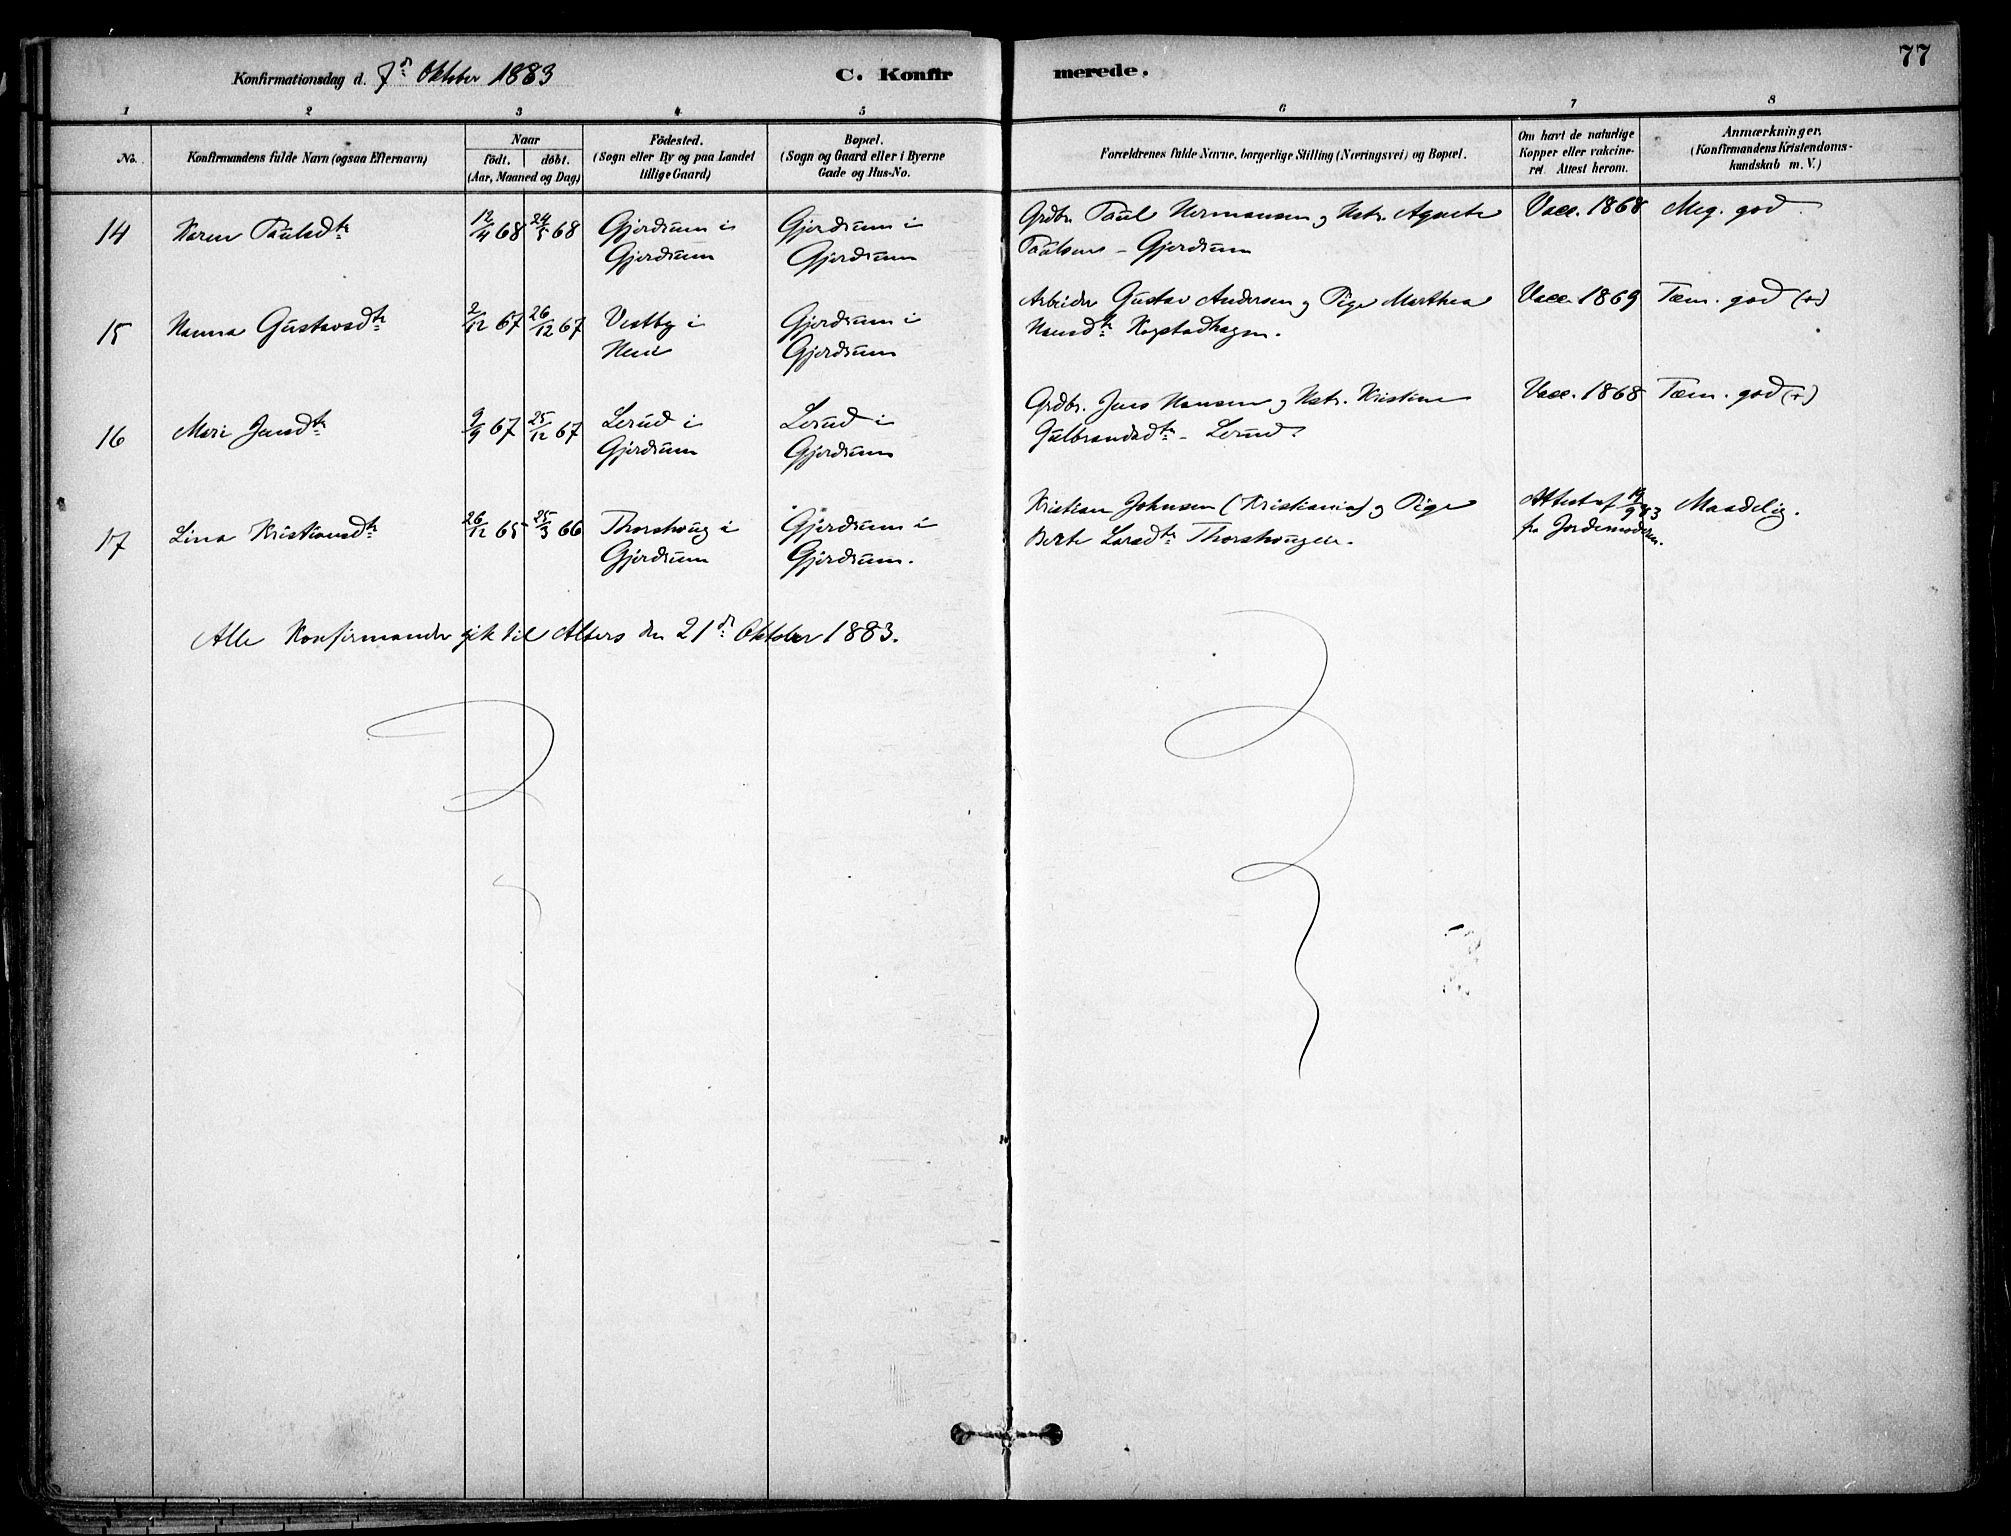 77
Konfirmationsdag d. 7de Oktober 1883
C. Konfirmerede.
1 2 3 4 5 6 7 8
No.
Konfirmandens fulde Navn (ogsaa Efternavn)
Naar
födt. döbt.
(Aar, Maaned og Dag)
Födested.
(Sogn eller By og paa Landet
tillige Gaard)
Bopæl.
(Sogn og Gaard eller i Byerne
Gade og Hus-No.
Forældrenes fulde Navne, borgerlige Stilling (Næringsvei) og Bopæl.
Om havt de naturlige
Kopper eller vakcine-
ret. Attest herom.
Anmærkninger.
(Konfirmandens Kristendoms-
kundskab m. V.)
14 Karen Paulsdtr 12/4 68 24/5 68 Gjerdrum i Gjerdrum i Grdbr. Paul Hermansen og Hstr. Agnete Vacc. 1868 Meg. god.
Gjerdrum Gjerdrum Paulsen - Gjerdrum
15 Hanna Gustavsdtr 2/12 67 26/12 67 Vestby i Gjerdrum i Arbeider Gustav Andersen og Pige Marthea Vacc. 1869 Tæm. god (+)
Gjerdrum Hansdtr Kogstadhagen.
16 Mari Jensdtr 9/9 67 25/12 67 Lerud i Lerud i Grdbr. Jens Hansen og Hstr. Kristine Vacc. 1868 Tæm. god (+)
Gjerdrum Gjerdrum Gulbrandsdtr - Lerud.
17 Lina Kristiansdtr 26/12 65 25/3 66 Thorshoug i Gjerdrum i Kristian Johnsen (Kristiania) og Pige Attest af 19/9 83 Maadelig.
Gjerdrum Gjerdrum. Berte Larsdtr Thorshougen. fra Jordemoderen.
Alle Konfirmander gik til Alters den 21de Oktober 1883.